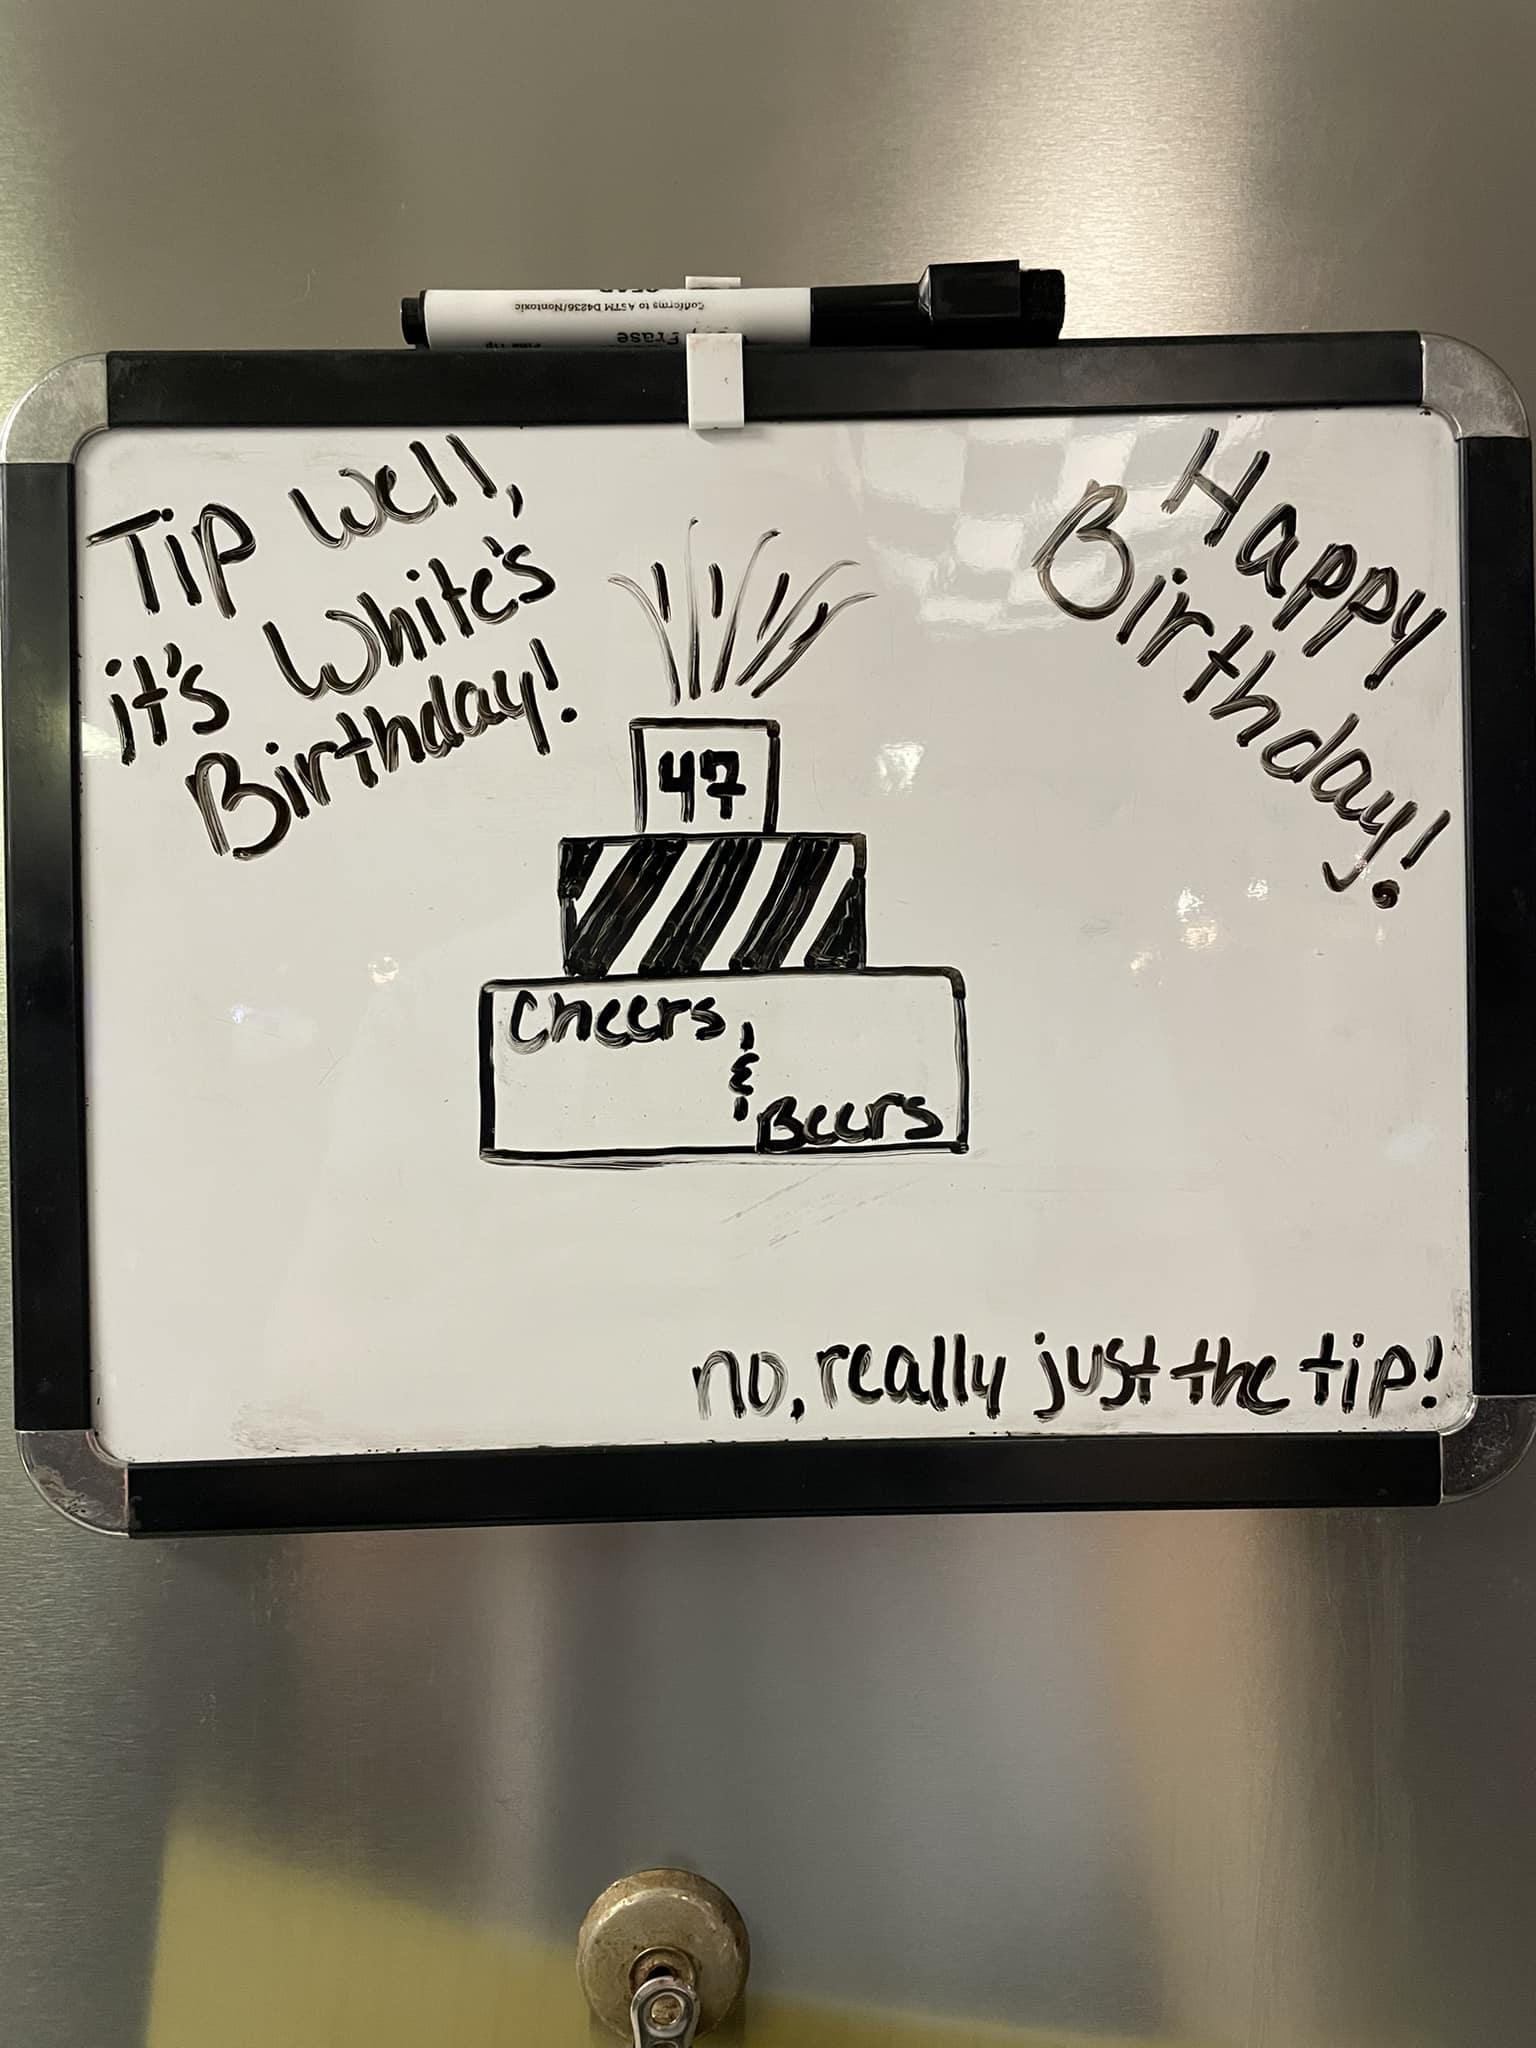 Conforms to ASTM D4236/Nontoxic
Erase
Tip well,
it's White's
Birthday!
Happy
Birthday!
47
Cheers
&
Beers
no, really just the tip!